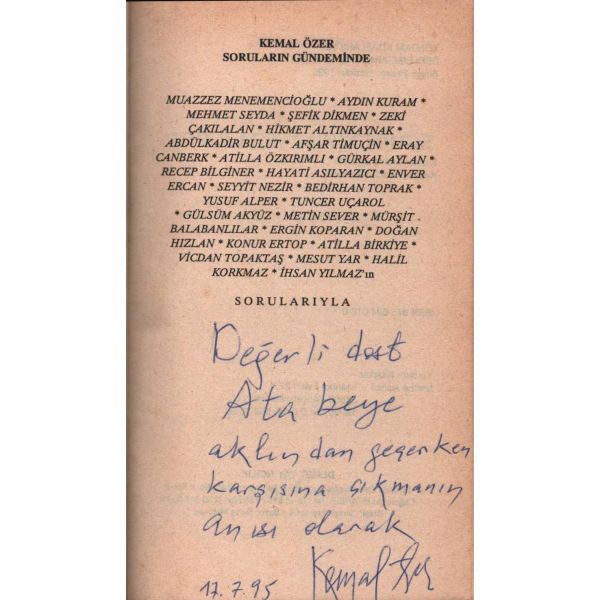 KEMAL ÖZER
SORULARIN GÜNDEMİNDE
MUAZZEZ MENEMENCİOĞLU * AYDIN KURAM *
MEHMET SEYDA * ŞEFİK DİKMEN * ZEKİ
ÇAKILALAN * HİKMET ALTINKAYNAK *
ABDÜLKADİR BULUT * AFŞAR TİMUÇİN * ERAY
CANBERK * ATİLLA ÖZKIRIMLI * GÜRKAL AYLAN *
RECEP BİLGİNER * HAYATİ ASILYAZICI * ENVER
ERCAN * SEYYİT NEZİR * BEDİRHAN TOPRAK *
YUSUF ALPER * TUNCER UÇAROL
* GÜLSÜM AKYÜZ * METİN SEVER * MÜRŞİT
BALABANLILAR * ERGİN KOPARAN * DOĞAN
HIZLAN * KONUR ERTOP * ATİLLA BİRKİYE *
VİCDAN TOPAKTAŞ * MESUT YAR * HALİL
KORKMAZ * İHSAN YILMAZ'ın
SORULARIYLA
Değerli dost
Ata beye
aklından geçerken
karşısına çıkmanın
anısı olarak
17.7.95 Kemal Özer